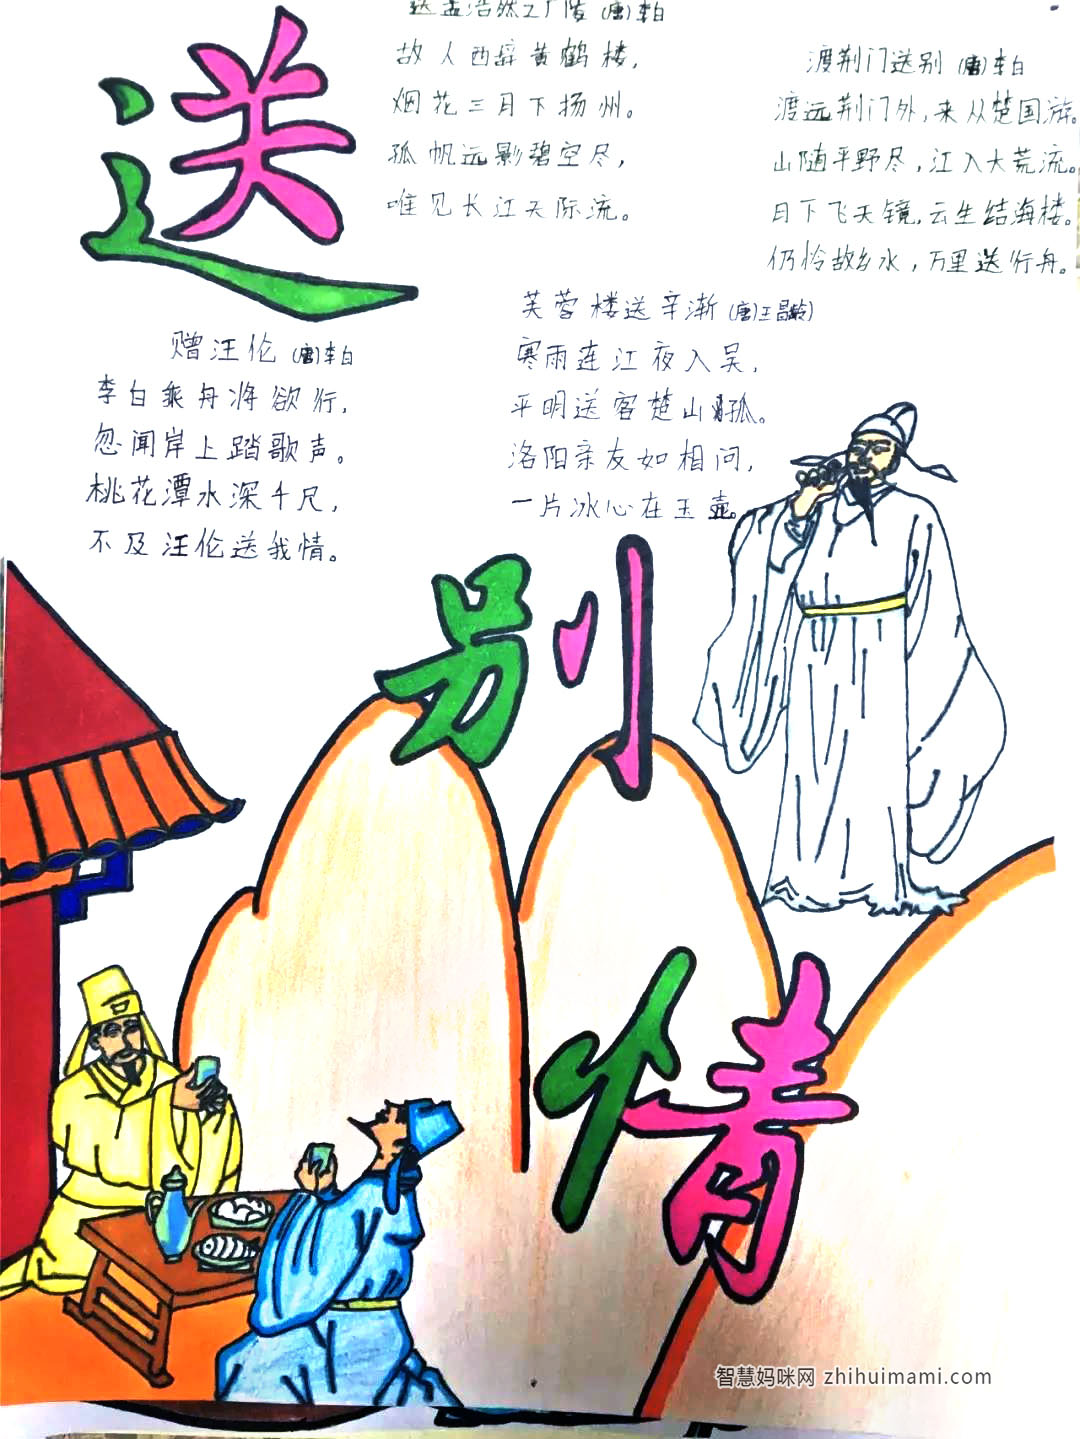 送
送孟浩然之广陵 (唐)李白
故人西辞黄鹤楼，
烟花三月下扬州。
孤帆远影碧空尽，
唯见长江天际流。
渡荆门送别 (唐)李白
渡远荆门外，来从楚国游。
山随平野尽，江入大荒流。
月下飞天镜，云生结海楼。
仍怜故乡水，万里送行舟。
赠汪伦 (唐)李白
李白乘舟将欲行，
忽闻岸上踏歌声。
桃花潭水深千尺，
不及汪伦送我情。
芙蓉楼送辛渐 (唐)王昌龄)
寒雨连江夜入吴，
平明送客楚山孤。
洛阳亲友如相问，
一片冰心在玉壶。
别
情
智慧妈咪网 zhihuimami.com